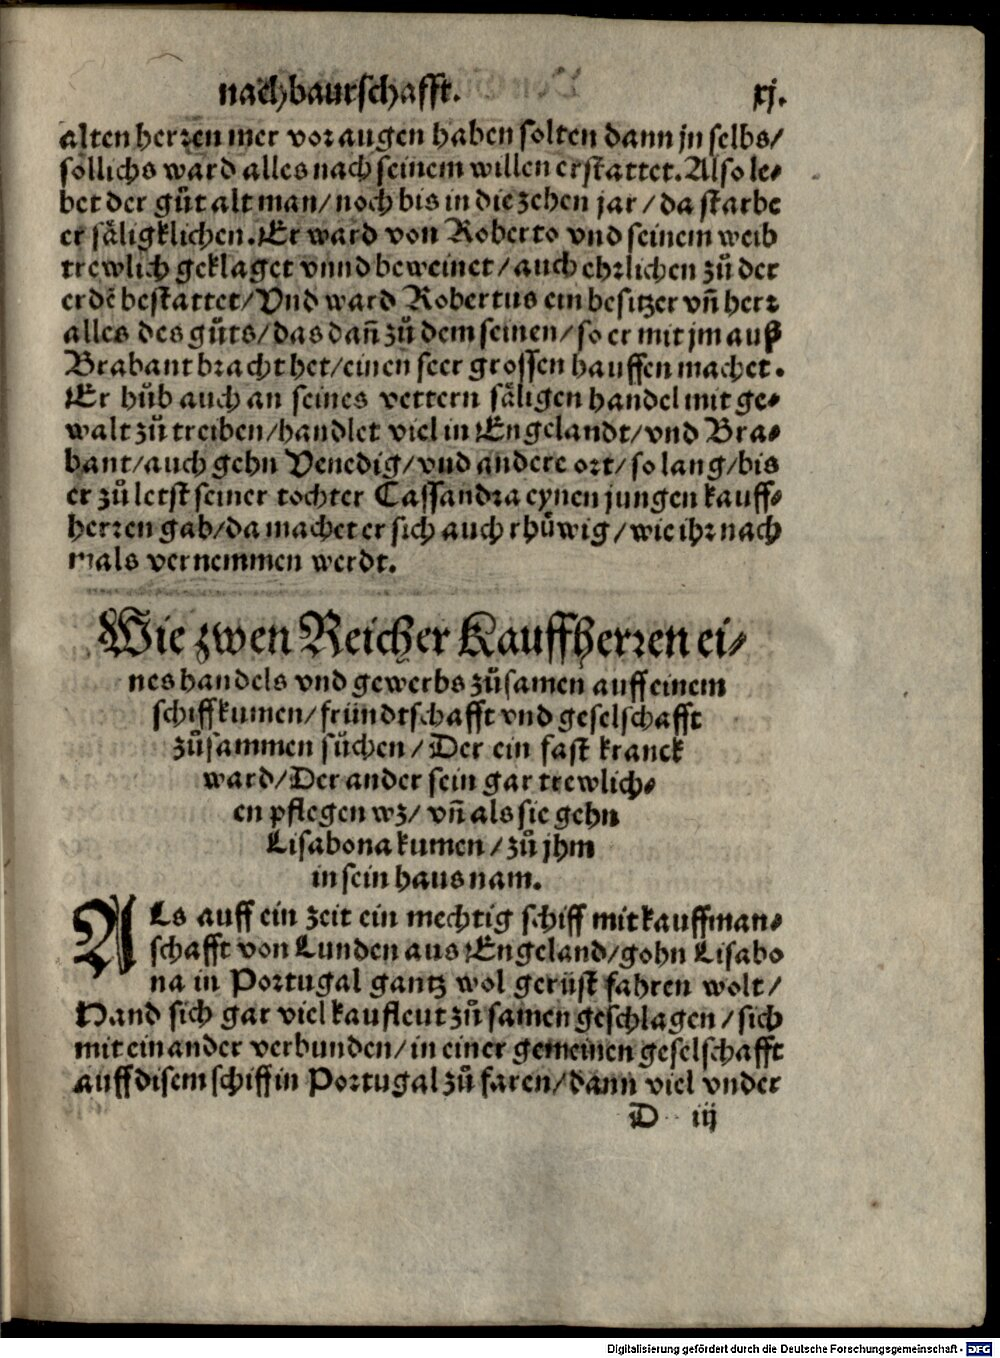 nachbaurschafft. xj.
alten herren mer vor augen haben solten dann jn selbs/
sollichs ward alles nach seinem willen erstattet. Also le-
bet der gůt alt man/ noch bis in die zehen jar/ da starbe
er säligklichen. Er ward von Roberto vnd seinem weib
trewlich geklaget vnnd beweinet/ auch ehrlichen zů der
erdē bestattet/ Vnd ward Robertus ein besitzer vñ herr
alles des gůts/ das dañ zů dem seinen/ so er mit jm auß
Brabant bracht het/ einen seer grossen hauffen machet.
Er hůb auch an seines vettern säligen handel mit ge-
walt zů treiben/ handlet viel in Engelandt/ vnd Bra-
bant/ auch gehn Venedig/ vnd andere ort/ so lang/ bis
er zů letst seiner tochter Cassandra eynen jungen kauff-
herren gab/ da machet er sich auch rhůwig/ wie ihr nach
mals vernemmen werdt.
Wie zwen Reicher Kauffherren ei-
nes handels vnd gewerbs zůsamen auff einem
schiff kumen/ fründtschafft vnd geselschafft
zůsammen sůchen/ Der ein fast kranck
ward/ Der ander sein gar trewlich-
en pflegen wz/ vñ als sie gehn
Lisabona kumen/ zů jhm
in sein haus nam.
ALs auff ein zeit ein mechtig schiff mit kauffman-
schafft von Lunden aus Engeland/ gohn Lisabo
na in Portugal gantz wol gerüst fahren wolt/
Hand sich gar viel kaufleut zů samen geschlagen/ sich
mit einander verbunden/ in einer gemeinen geselschafft
auff disem schiff in Portugal zů faren/ dann viel vnder
D iij
Digitalisierung gefördert durch die Deutsche Forschungsgemeinschaft - DFG